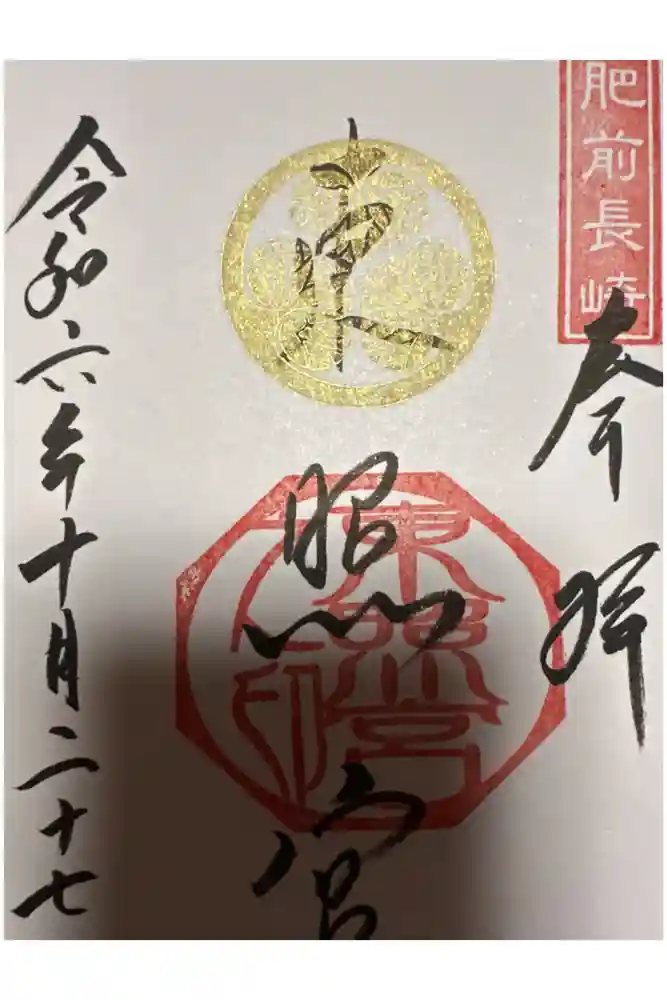 肥前長崎
奉拝
東照宮
東照宮
令和六年十月二十七